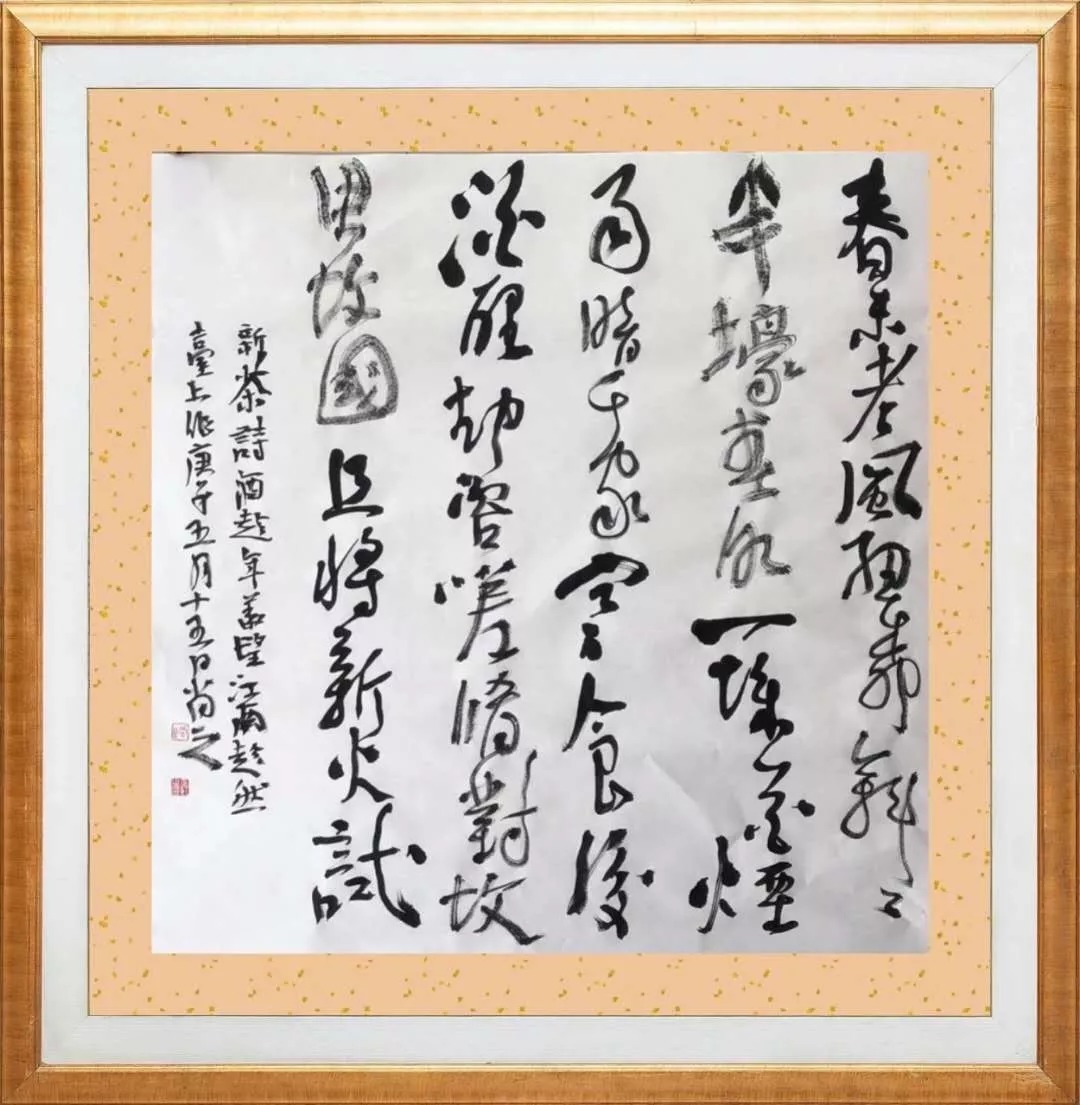 春未老風細柳斜〻
半壕春水一城花煙
雨暗千家寒食後
酒醒却咨嗟對故
思故國且將新火試
新茶詩酒趁年華望江南超然
臺上作庚子五月十五日尚之